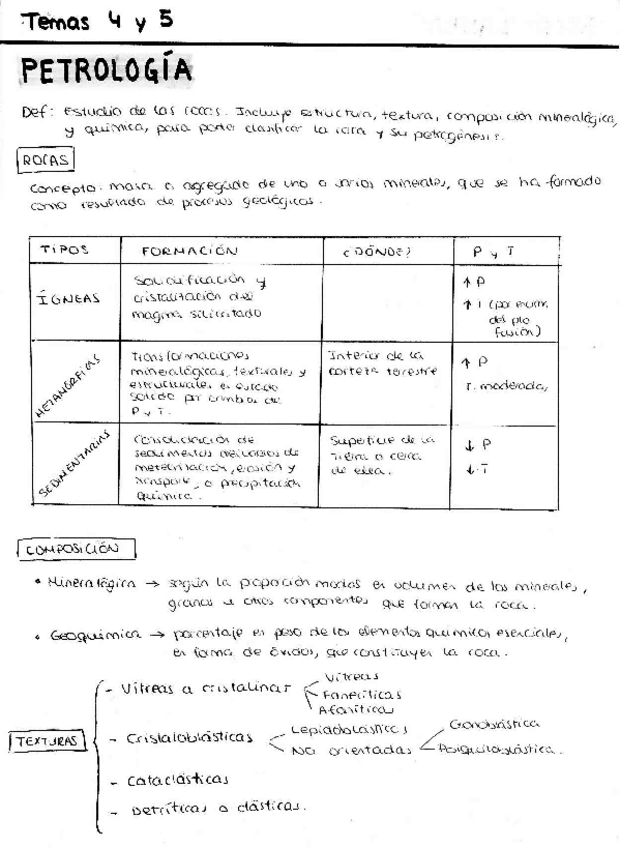 Temas 4 y 5
PETROLOGÍA
Def: Estudio de las rocas. Incluye estructura, textura, composición mineralógica,
y química, para poder clasificar la roca y su petrogénesis.
ROCAS
Concepto: masa o agregado de uno o varios minerales, que se ha formado
como resultado de procesos geológicos.
TIPOS FORMACIÓN ¿DÓNDE? P y T
ÍGNEAS
Solidificación y
cristalización del
magma silicatado
↑ P
↑ T (por encim.
del pto
fusión)
METAMÓRFICAS
Transformaciones
mineralógicas, texturales y
estructurales en estado
sólido por cambios de
P y T.
Interior de la
corteza terrestre
↑ P
T. moderada,
SEDIMENTARIAS
Consolidación de
sedimentos derivados de
meteorización, erosión y
transporte, o precipitación
química.
Superficie de la
Tierra o cerca
de ella.
↓ P
↓ T
COMPOSICIÓN
• Mineralógica → según la proporción modas en volumen de los minerales,
granos u otros componentes que forman la roca.
• Geoquímica → porcentaje en peso de los elementos químicos esenciales,
en forma de óxidos, que constituyen la roca.
TEXTURAS
- Vítreas a cristalinas
Vítreas
Faneríticas
Afaníticas
- Cristaloblásticas
Lepidoblásticas
No orientadas
Granoblástica
Poiquiloblástica.
- Cataclásticas
- Detríticas o clásticas.